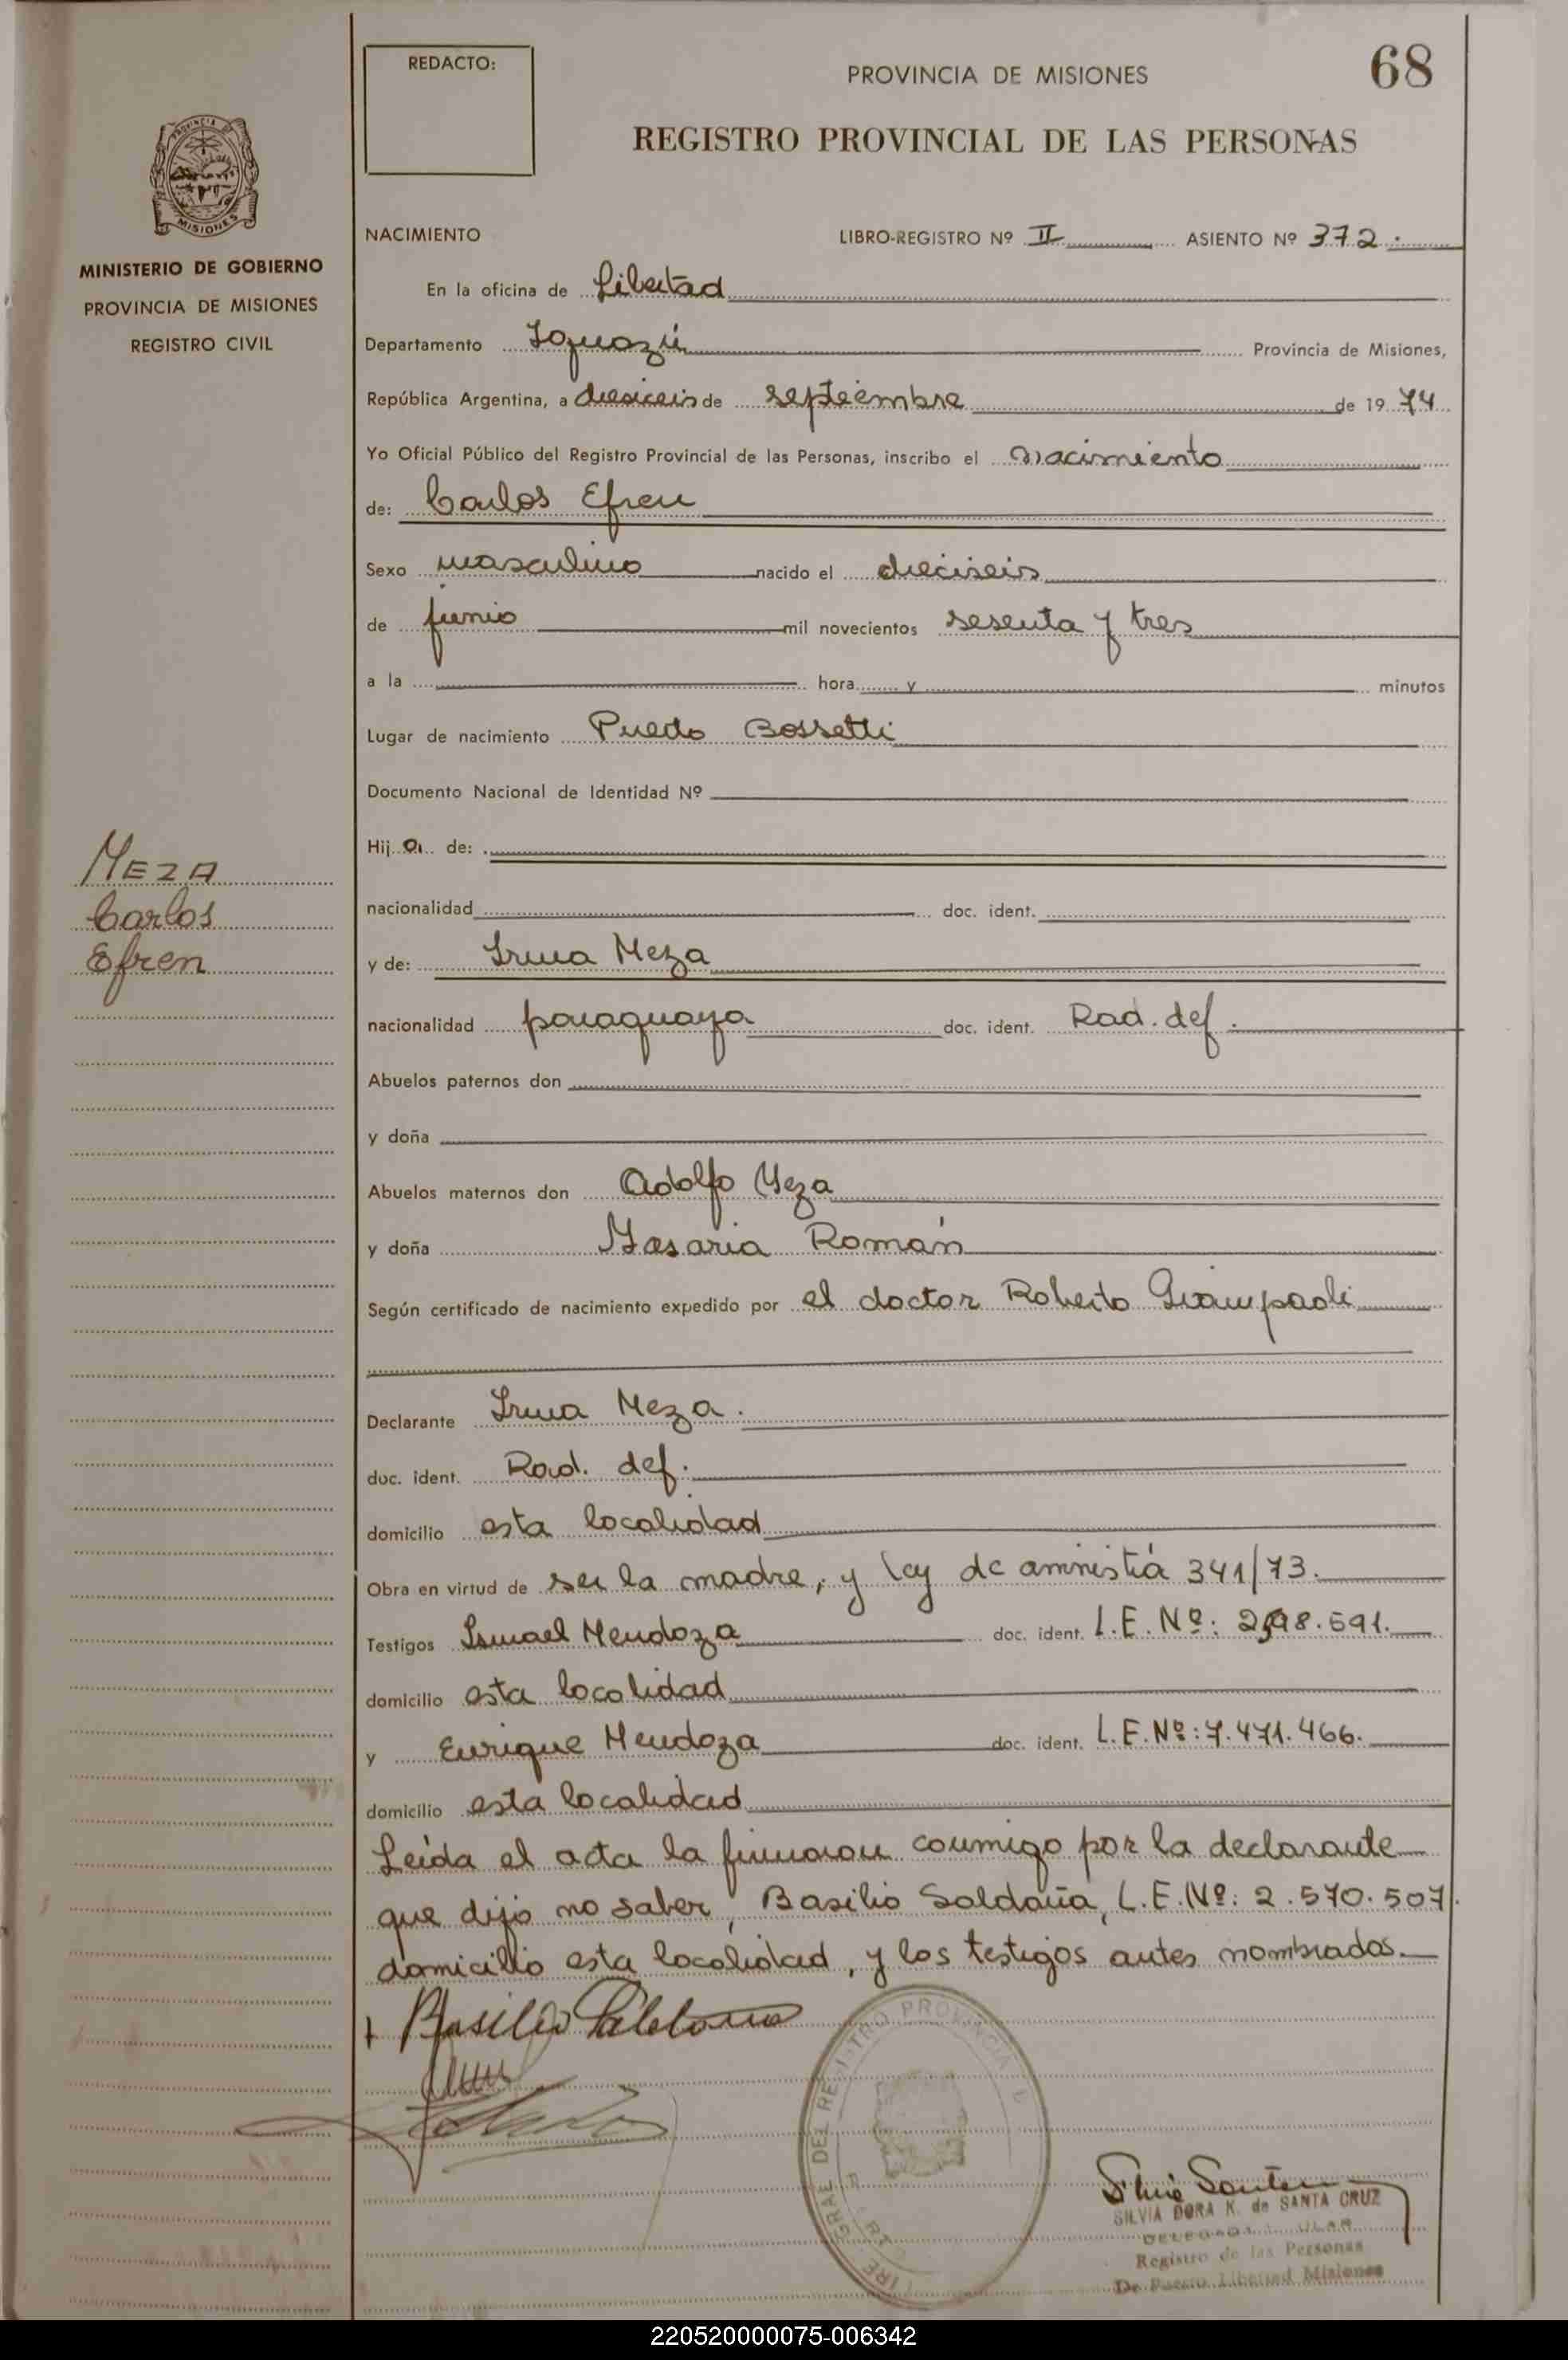 REDACTO:
PROVINCIA DE MISIONES
68
REGISTRO PROVINCIAL DE LAS PERSONAS
MISIONES
MINISTERIO DE GOBIERNO
PROVINCIA DE MISIONES
REGISTRO CIVIL
NACIMIENTO LIBRO-REGISTRO Nº II ASIENTO Nº 372.
En la oficina de Libertad
Departamento Iguazú Provincia de Misiones,
República Argentina, a diesiceis de septiembre de 19 74
Yo Oficial Público del Registro Provincial de las Personas, inscribo el nacimiento
de: Carlos Efren
Sexo masculino nacido el dieciseis
de junio mil novecientos sesenta y tres
a la hora y minutos
Lugar de nacimiento Puerto Bossetti
Documento Nacional de Identidad Nº
Hij o de:
MEZA
Carlos
Efren
nacionalidad doc. ident.
y de: Irma Meza
nacionalidad paraguaya doc. ident. Rad. def.
Abuelos paternos don
y doña
Abuelos maternos don Adolfo Meza
y doña Masaria Román
Según certificado de nacimiento expedido por el doctor Roberto Giampaoli
Declarante Irma Meza.
doc. ident. Rad. def.
domicilio esta localidad
Obra en virtud de ser la madre, y ley de amnistiá 341/73.
Testigos Ismael Mendoza doc. ident. L.E. Nº:
domicilio esta localidad
y Enrique Mendoza doc. ident. L.E. Nº: 7.471.466.
domicilio esta localidad
Leída el acta la firmaron conmigo por la declarante
que dijo no saber, Basilio Saldaña, L.E. Nº: 2.570.507.
domicilio esta localidad, y los testigos antes nombrados.
Basilio Saldaña
DEL REGISTRO PROVINCIAL
SILVIA DORA K. de SANTA CRUZ
DELEGADA TITULAR
Registro de las Personas
De Puerto Libertad Misiones
220520000075-006342